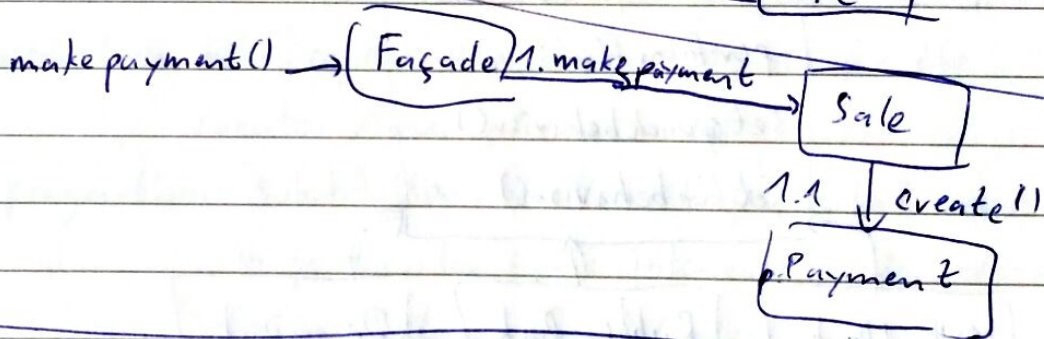 makepayment() → Façade 1. make payment
Sale
1.1 create()
p.Payment